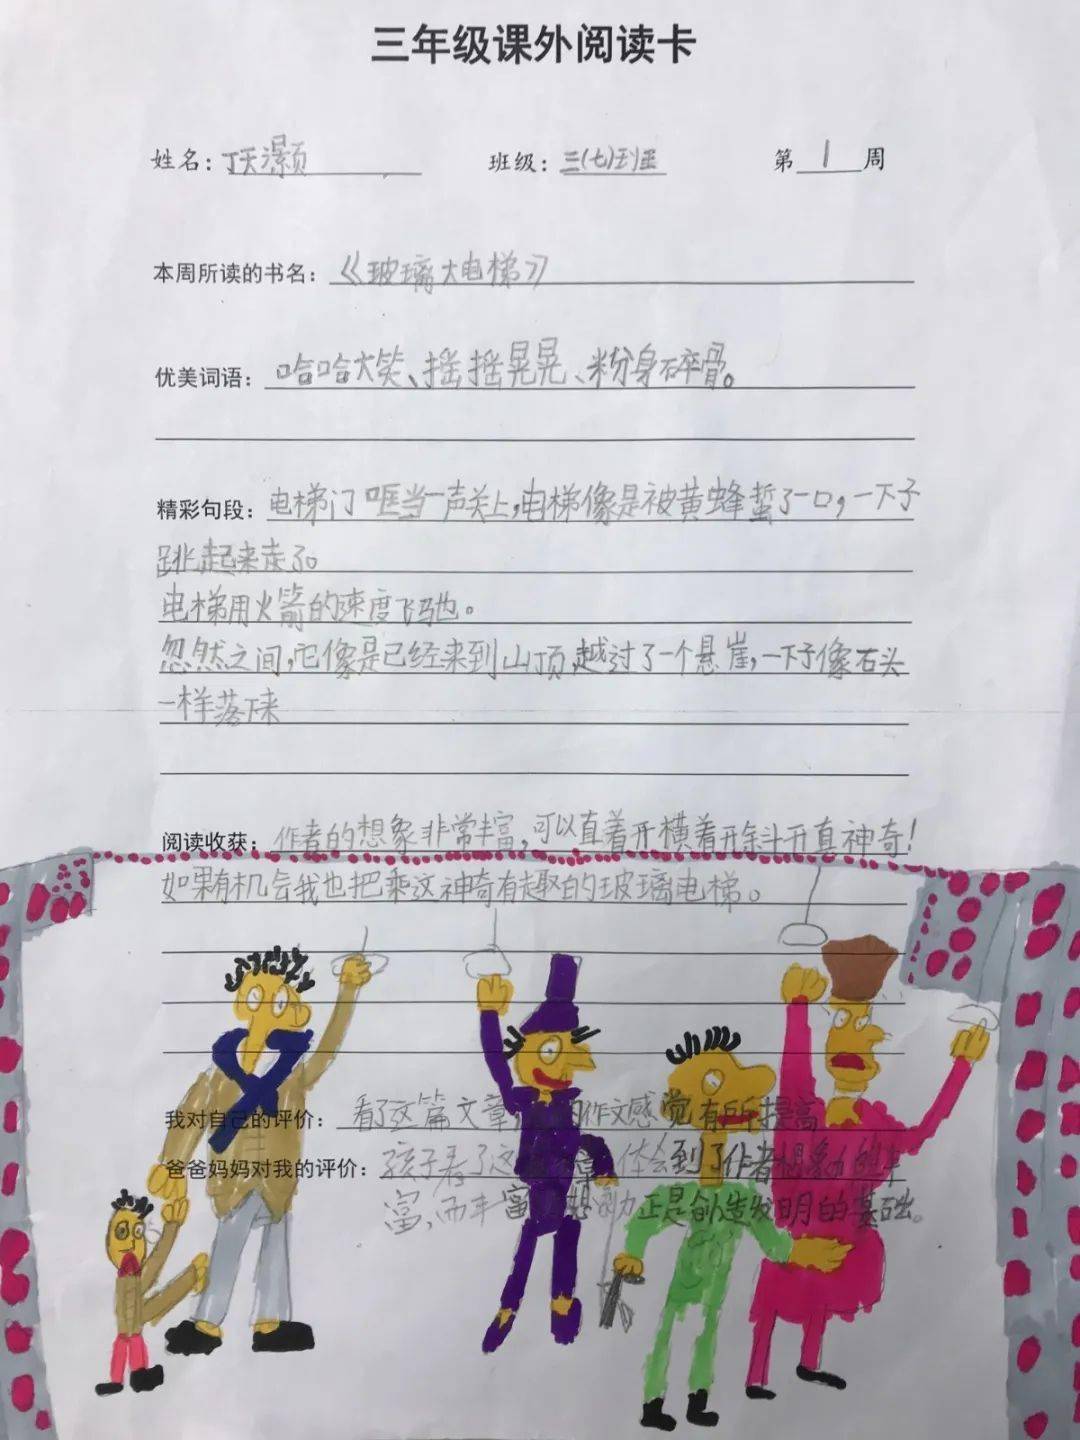 三年级课外阅读卡
姓名：丁天灏 班级：三(七)班 第 1 周
本周所读的书名：《玻璃大电梯》
优美词语：哈哈大笑、摇摇晃晃、粉身碎骨。
精彩句段：电梯门哐当一声关上，电梯像是被黄蜂蜇了一口，一下子
跳起来走了。
电梯用火箭的速度飞驰。
忽然之间，它像是已经来到山顶，越过了一个悬崖，一下子像石头
一样落下来
阅读收获：作者的想象非常丰富，可以直着开横着开斜斗开真神奇！
如果有机会我也把乘这神奇有趣的玻璃电梯。
我对自己的评价：看了这篇文章 的作文感觉有所提高
爸爸妈妈对我的评价：孩子看了这 章 体会到了作者想象力的丰
富，而丰富 想象力正是创造发明的基础。